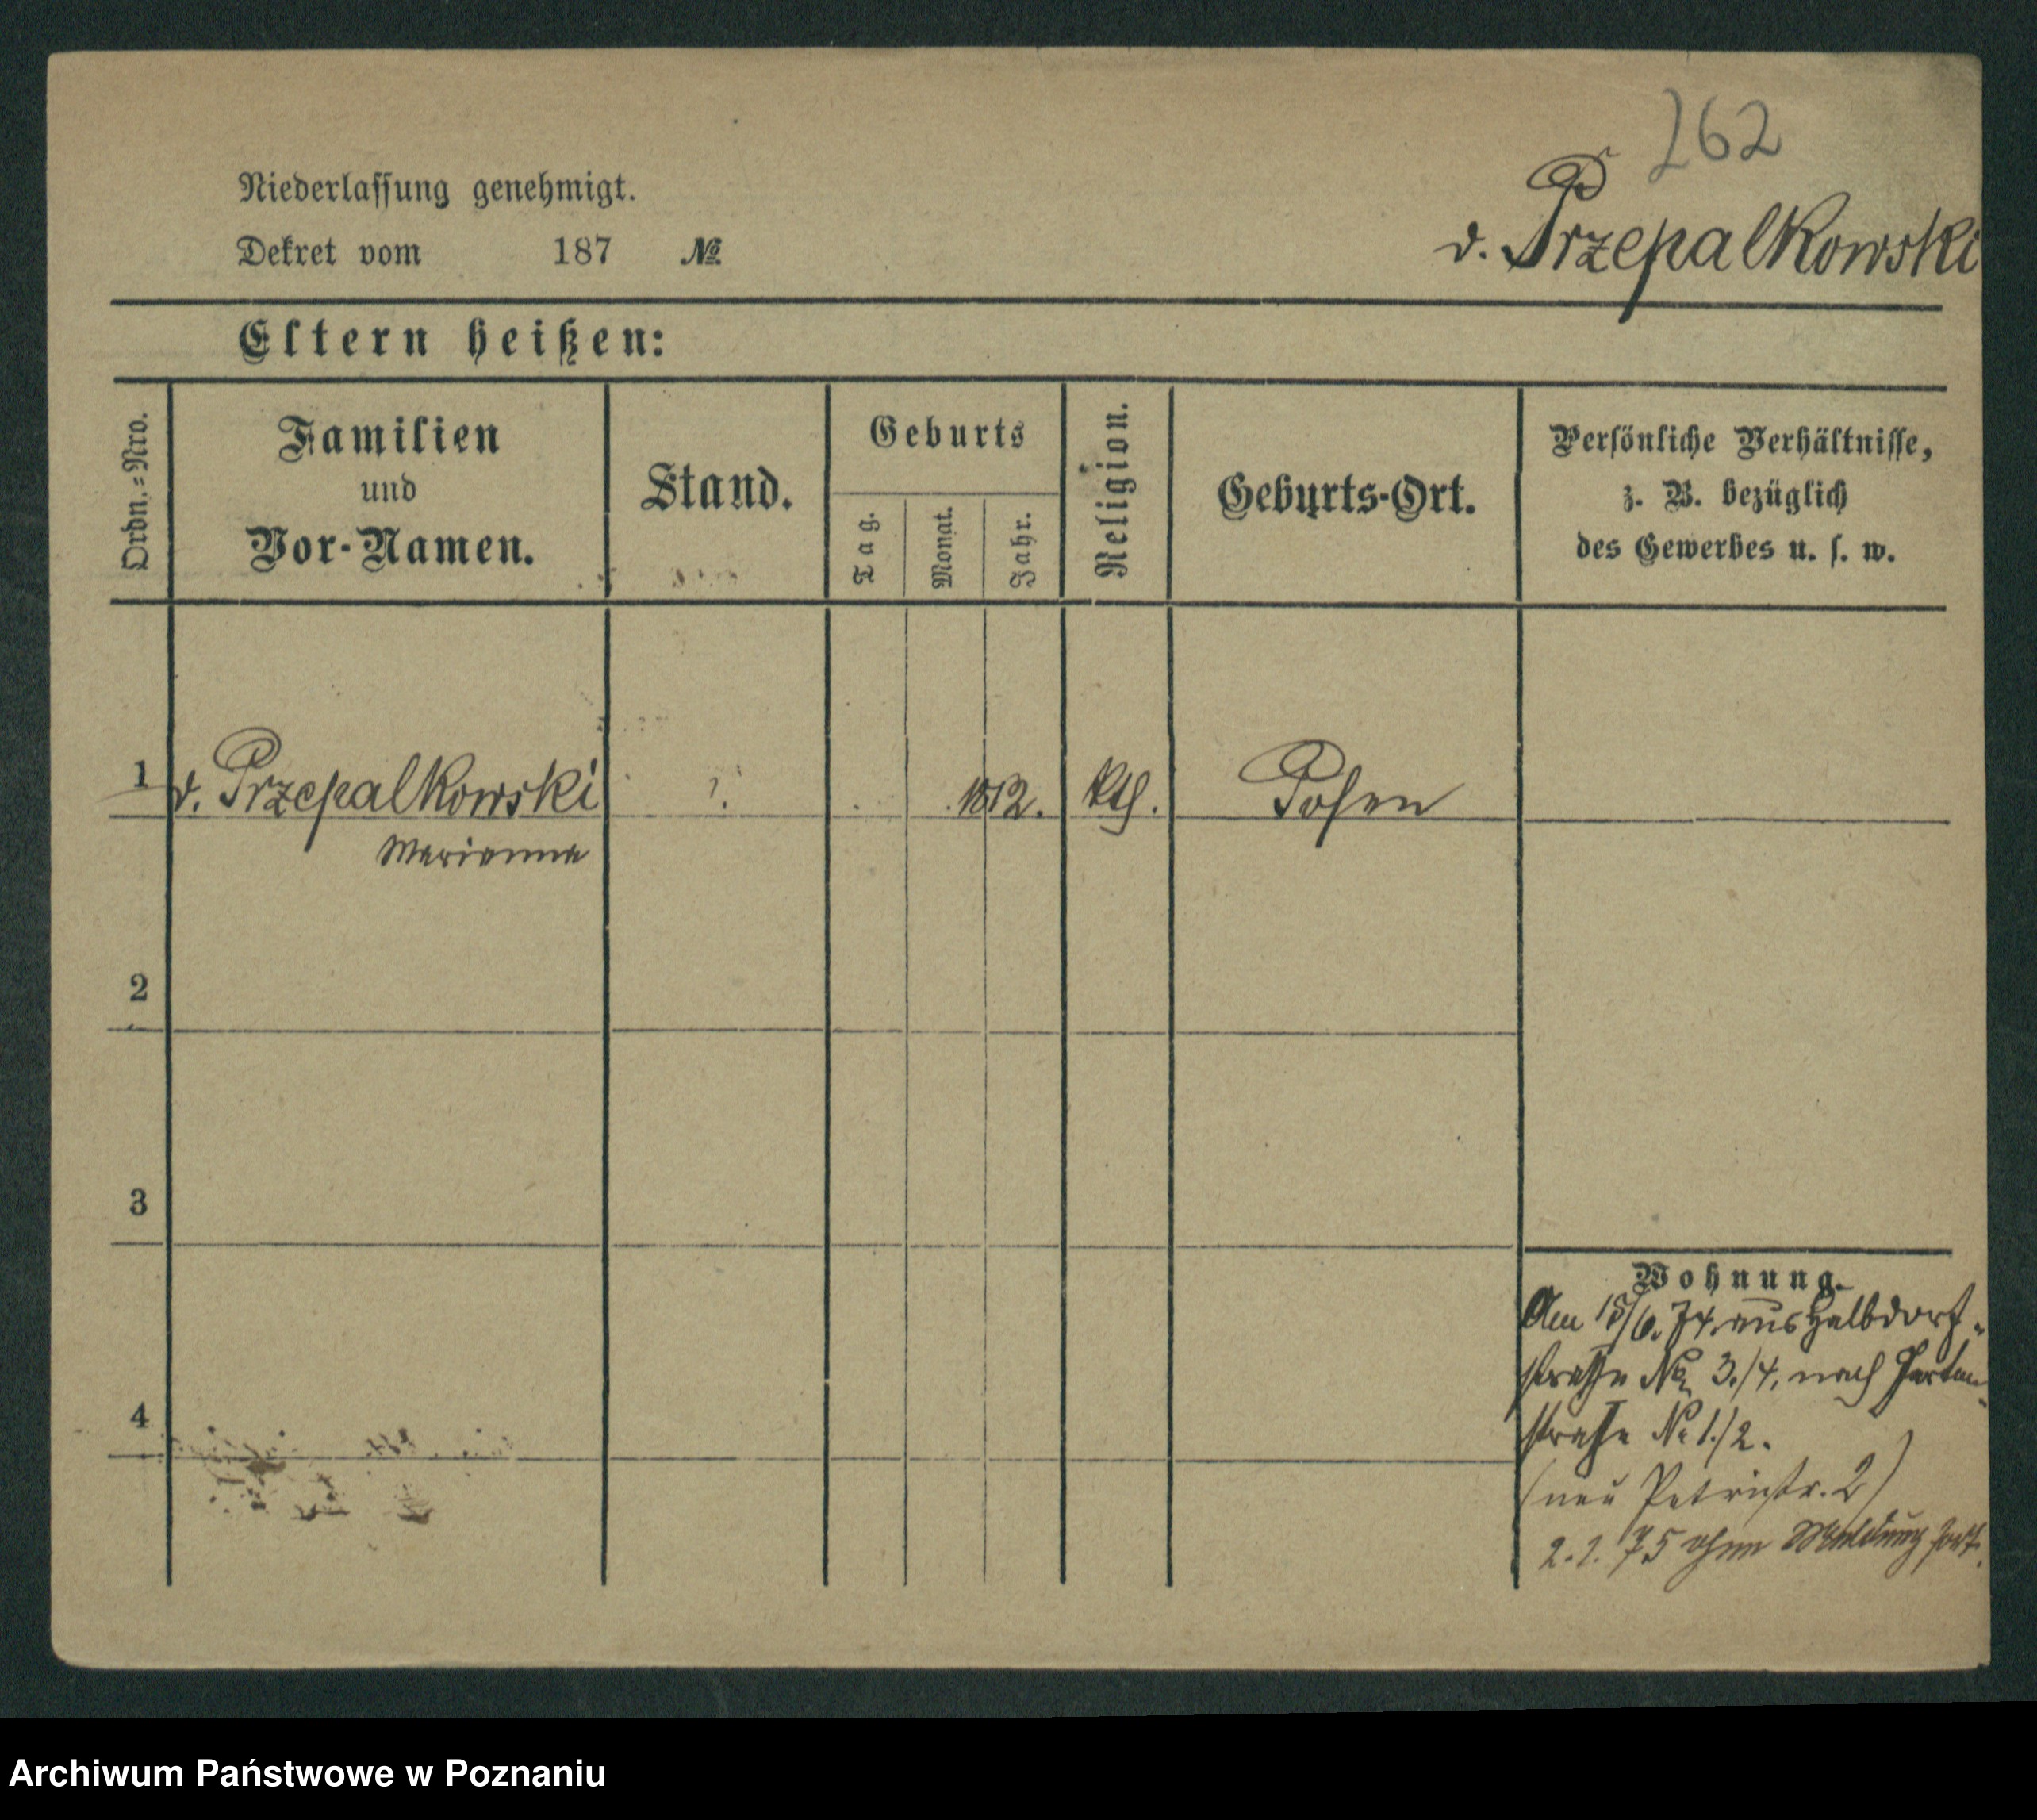 262
Niederlassung genehmigt.
v. Przepalkowski
Dekret vom 187 №
Eltern heißen:
Ordn.=Nro.
Familien
und
Vor-Namen.
Stand.
Geburts
Tag.
Monat.
Jahr.
Religion.
Geburts-Ort.
Persönliche Verhältnisse,
z. B. bezüglich
des Gewerbes u. s. w.
1 v. Przepalkowski ?. 1812. kth. Posen
Marianna
2
3
4
Wohnung.
Am 15/6. 74. aus Halbdorf-
straße No 3./4. nach Garten-
straße No 1./2.
(neu Petristr. 2)
2. 1. 75 ohne Meldung fort.
Archiwum Państwowe w Poznaniu